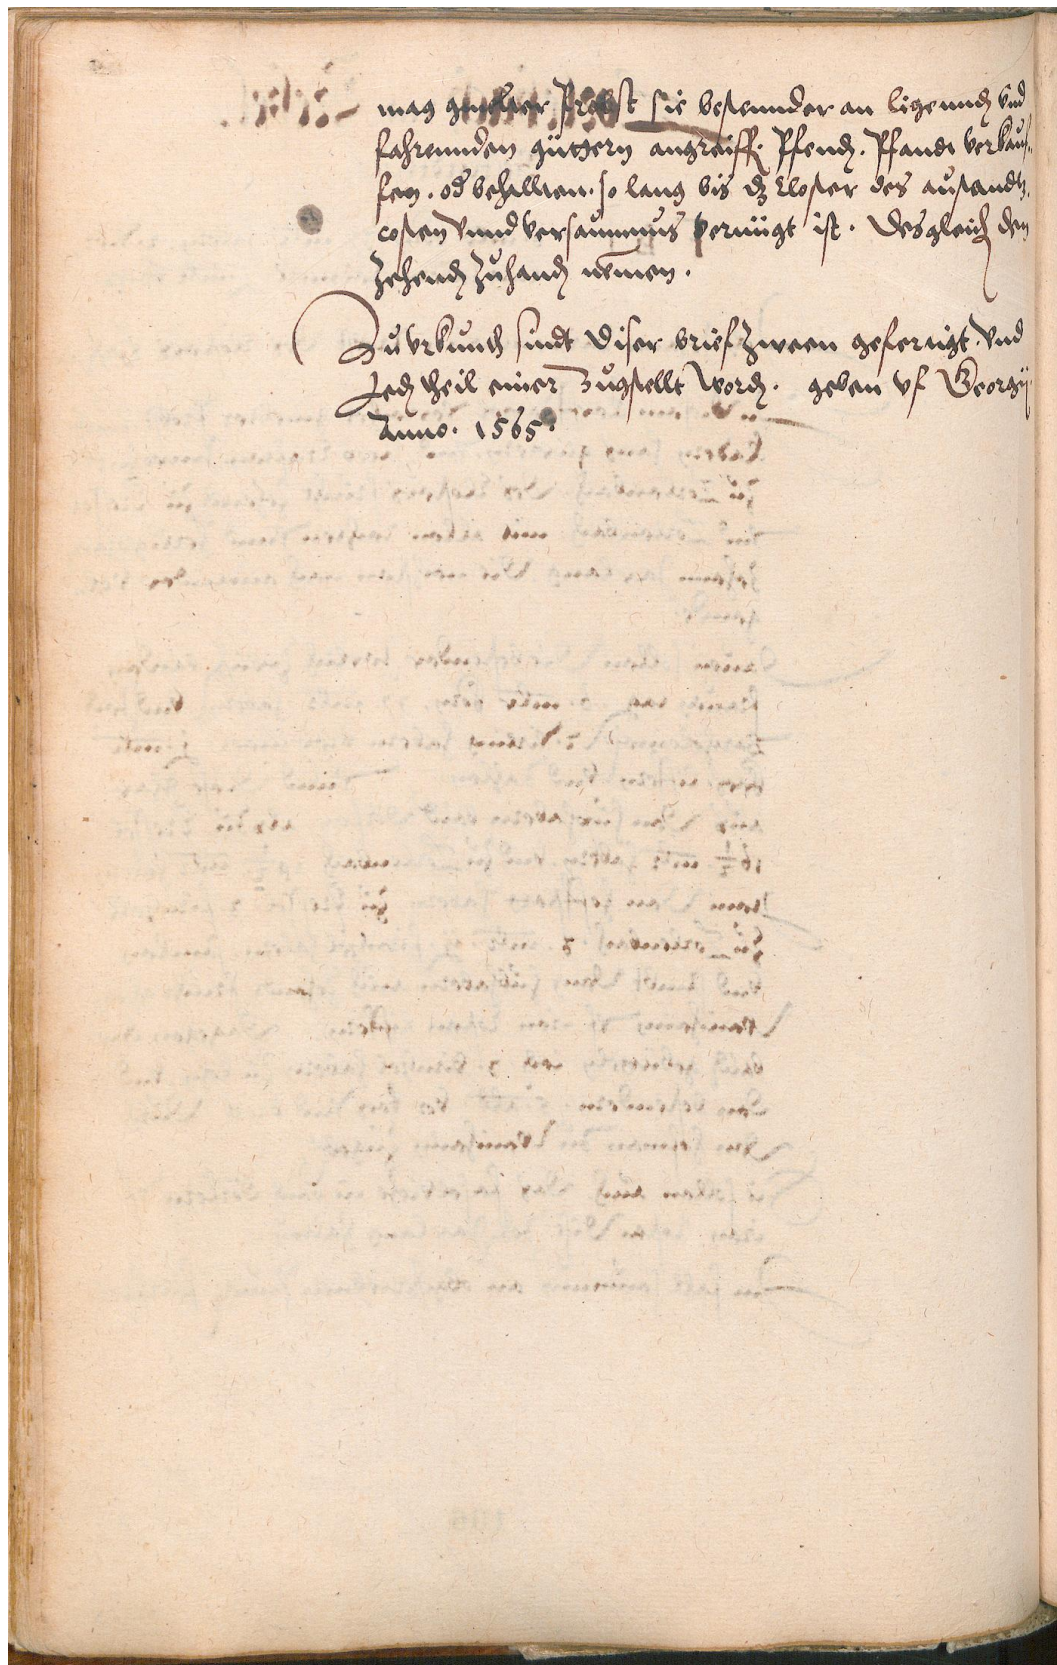 mag gemelter Probst sie bestennder an ligennd vnd
fahrennden güttern angreiff. Pfend. Pfandt verkauf¬
fen. od behallten. so lang bis dz Closter des austandts,
costen vnnd versaumnus vernügt ist. Desgleich den
Zehend Zuhand nemen.
Zu vrkunth sindt diser brief Zween gefertigt. vnd
Jed theil einer Zugstellt word. geben vf Georgij
Anno. 1565.